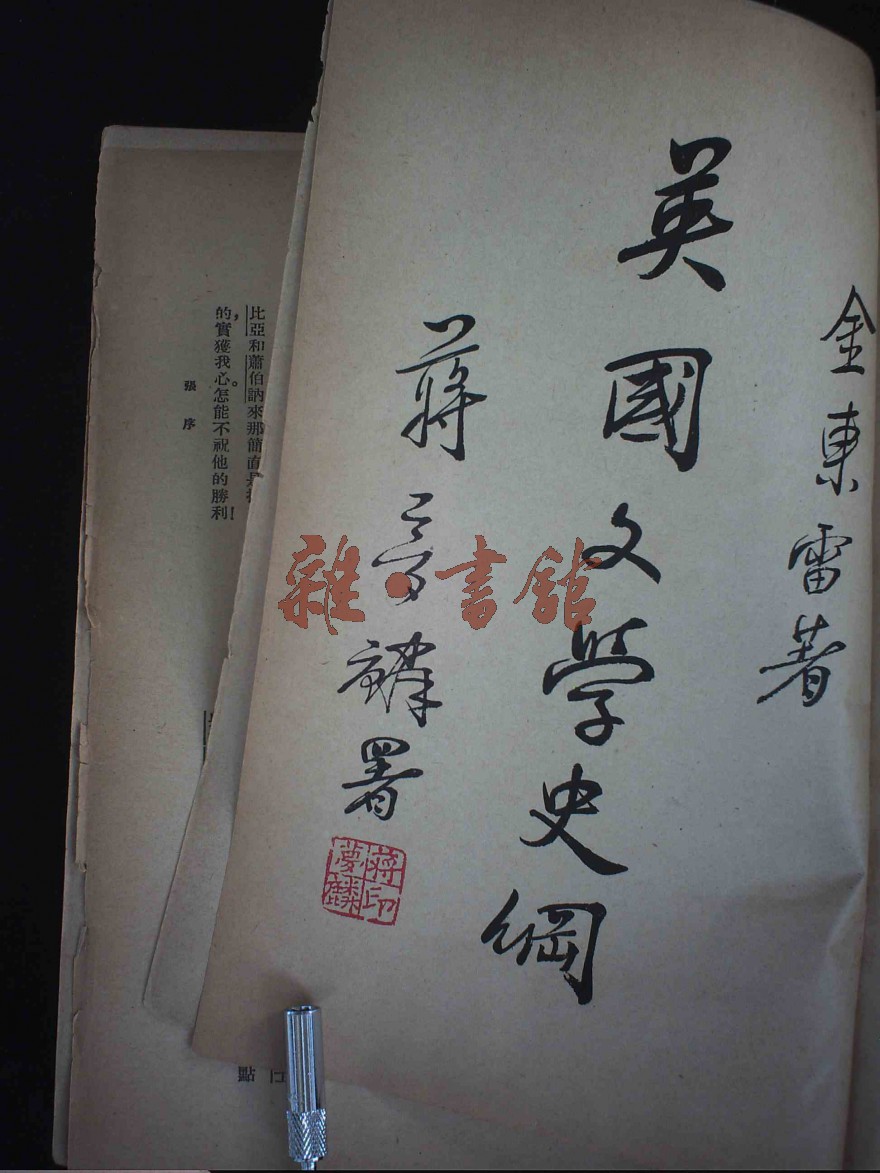 金東雷著
英國文學史綱
蔣夢麟署
蔣印
夢麟
雜·書館
比亞和蕭伯訥來那簡直是
的,實獲我心。怎能不祝他的勝利!
張序
點